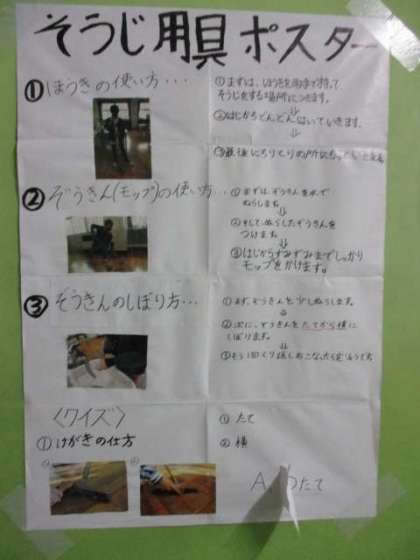 そうじ用具ポスター
①ほうきの使い方・・・
①まずは、ほうきを両手で持って
そうじをする場所につきます。
⇩
②はじからどんどんはいていきます。
⇩
③最後にちりとりの所に
②ぞうきん(モップ)の使い方・・・
①まずは、ぞうきんを水で
ぬらします。
⇩
②そして、ぬらしたぞうきんを
つけます。
⇩
③はじからすみずみまでしっかり
モップをかけます。
③ぞうきんのしぼり方・・・
①まず、ぞうきんを少しぬらします。
⇩
②次に、ぞうきんをたてから横に
しぼります。
⇩
③もう1回くり返しおこなったら
〈クイズ〉
①はがきの仕方
①たて
②横
A
たて